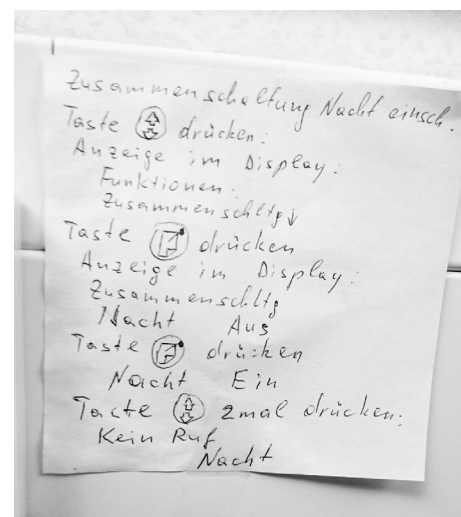 Zusammenschaltung Nacht einsch.
Taste drücken:
Anzeige im Display:
Funktionen:
Zusammenschltg↓
Taste drücken
Anzeige im Display:
Zusammenschltg
Nacht Aus
Taste drücken
Nacht Ein
Taste 2mal drücken:
Kein Ruf
Nacht